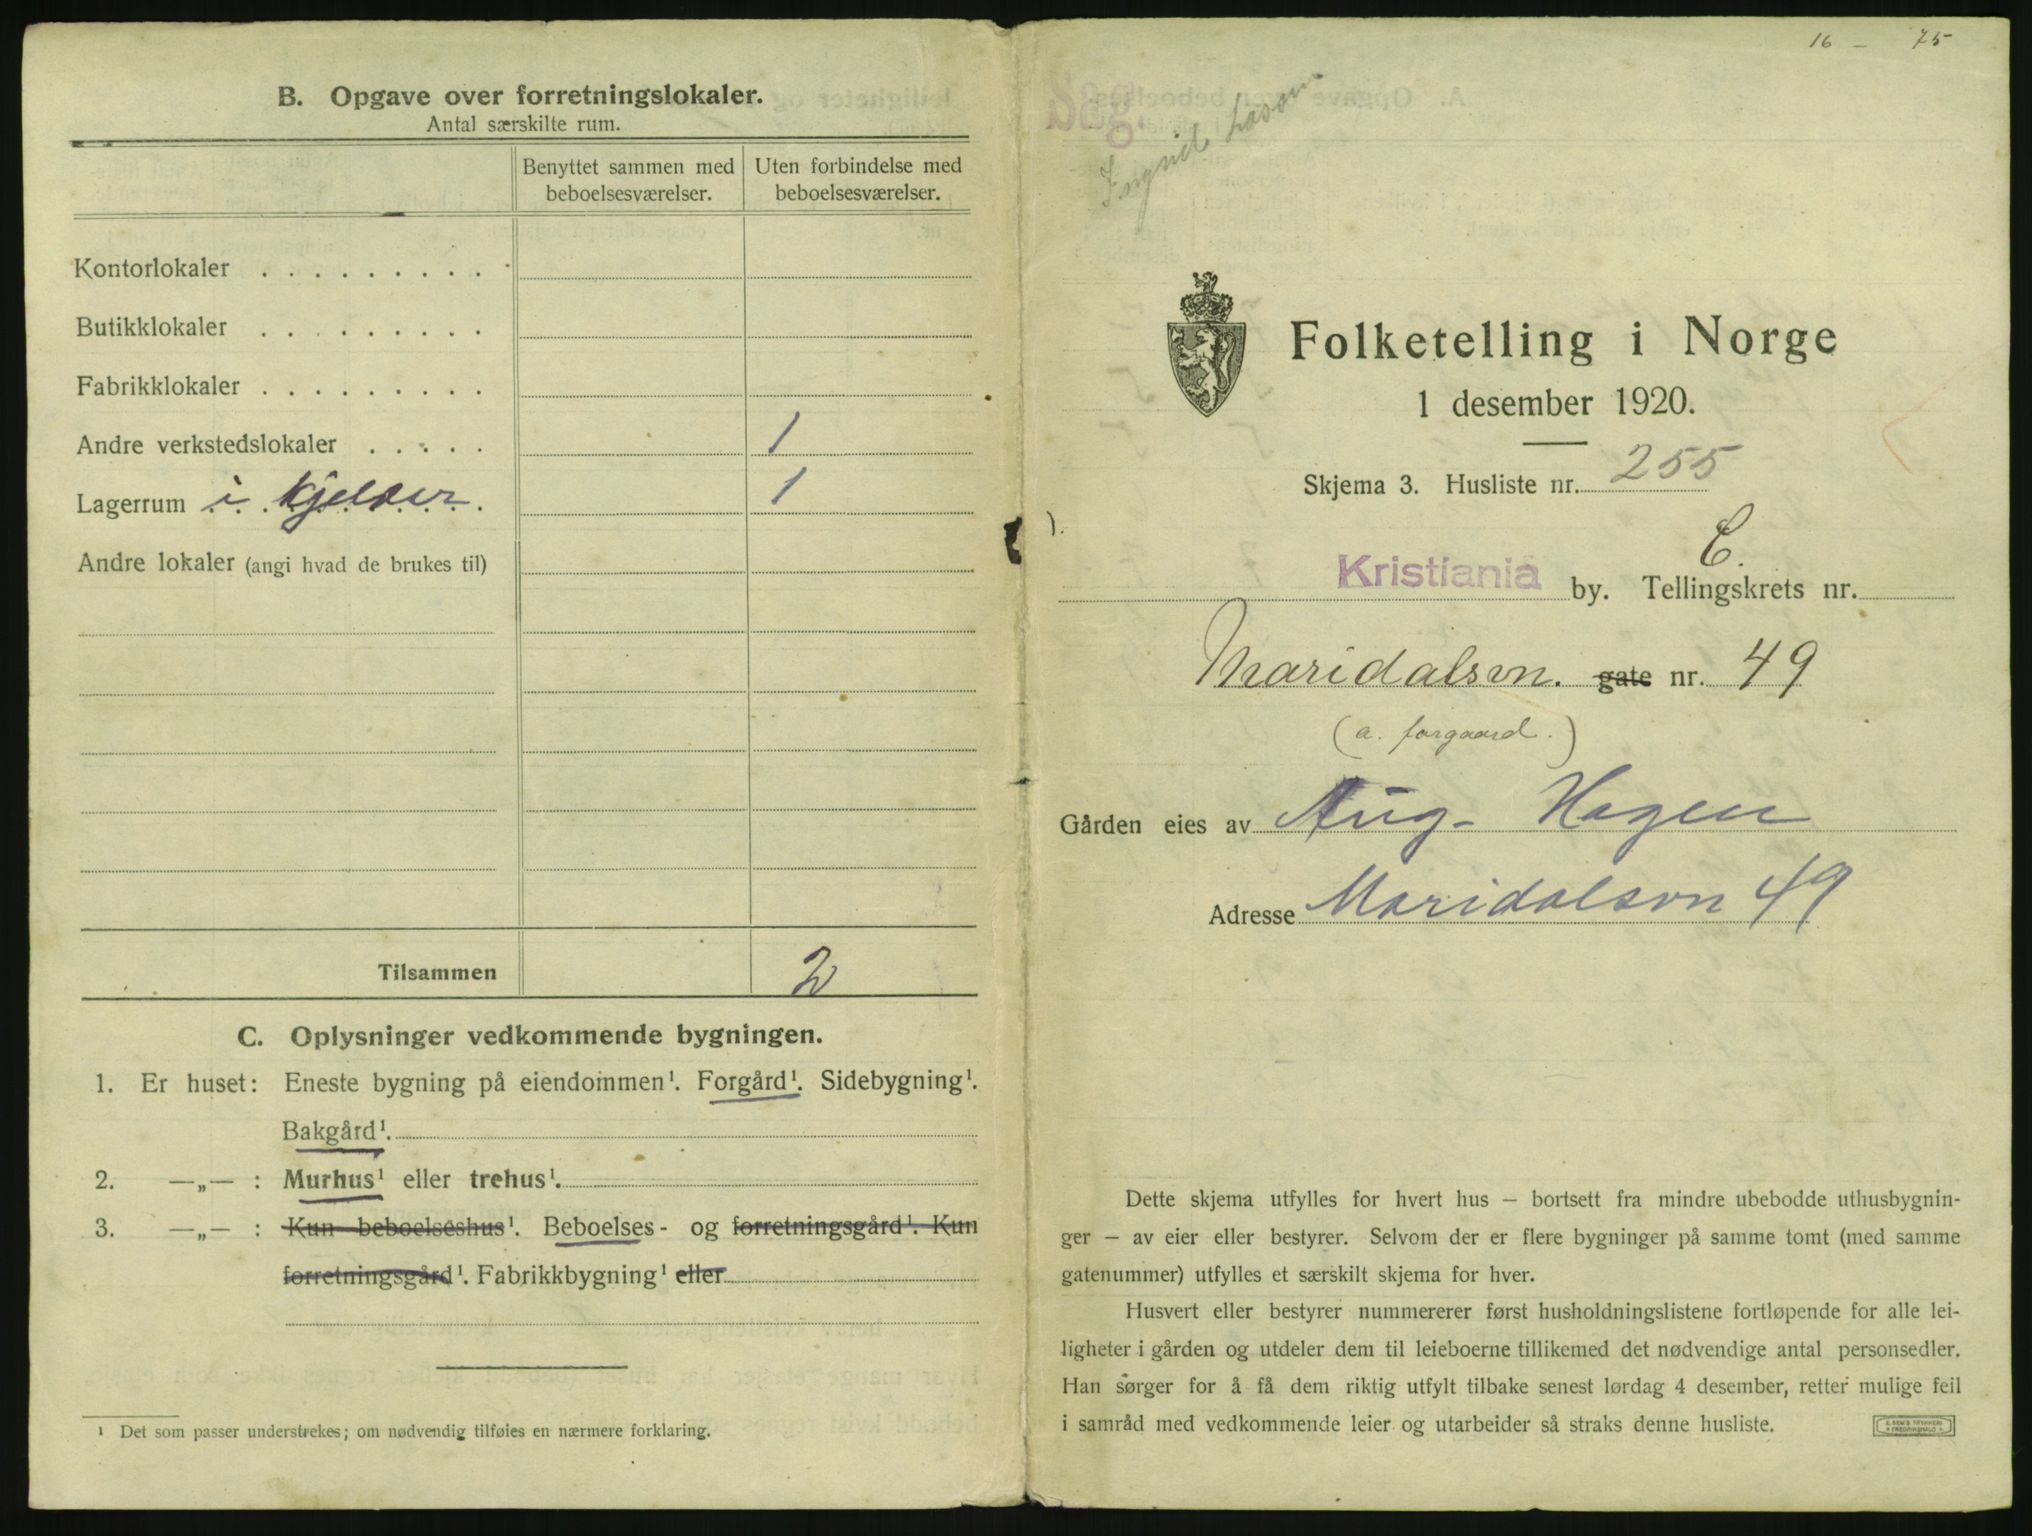 B. Opgave over forretningslokaler.
Antal særskilte rum.
Benyttet sammen med beboelsesværelser.
Uten forbindelse med beboelsesværelser.
Kontorlokaler . . . . . . . . .
Butikklokaler . . . . . . . .
Fabrikklokaler . . . . . . . .
Andre verkstedslokaler . . . . . 1
Lagerrum i kjelder 1
Andre lokaler (angi hvad de brukes til)
Tilsammen 2
C. Oplysninger vedkommende bygningen.
1. Er huset: Eneste bygning på eiendommen¹. Forgård¹. Sidebygning¹.
Bakgård¹.
2. —„— : Murhus¹ eller trehus¹.
3. —„— : Kun beboelseshus¹. Beboelses- og forretningsgård¹. Kun
forretningsgård¹. Fabrikkbygning¹ eller
¹ Det som passer understrekes; om nødvendig tilføies en nærmere forklaring.
16 – 75
Sag.
Ingrid
Folketelling i Norge
1 desember 1920.
Skjema 3. Husliste nr. 255
C.
Kristiania by. Tellingskrets nr.
Maridalsvn. gate nr. 49
(a. forgaard.)
Gården eies av Aug. Hagen
Adresse Maridalsvn 49
Dette skjema utfylles for hvert hus – bortsett fra mindre ubebodde uthusbygnin-
ger – av eier eller bestyrer. Selvom der er flere bygninger på samme tomt (med samme
gatenummer) utfylles et særskilt skjema for hver.
Husvert eller bestyrer nummererer først husholdningslistene fortløpende for alle lei-
ligheter i gården og utdeler dem til leieboerne tillikemed det nødvendige antal personsedler.
Han sørger for å få dem riktig utfylt tilbake senest lørdag 4 desember, retter mulige feil
i samråd med vedkommende leier og utarbeider så straks denne husliste.